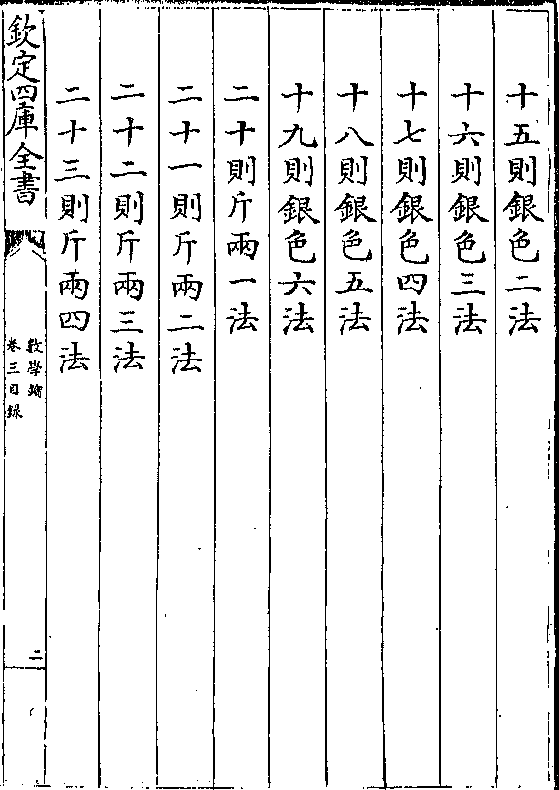 十五則銀色二法
十六則銀色三法
十七則銀色四法
十八則銀色五法
十九則銀色六法
二十則斤兩一法
二十一則斤兩二法
二十二則斤兩三法
二十三則斤兩四法
欽定四庫全書
數學鑰
卷三目錄
二